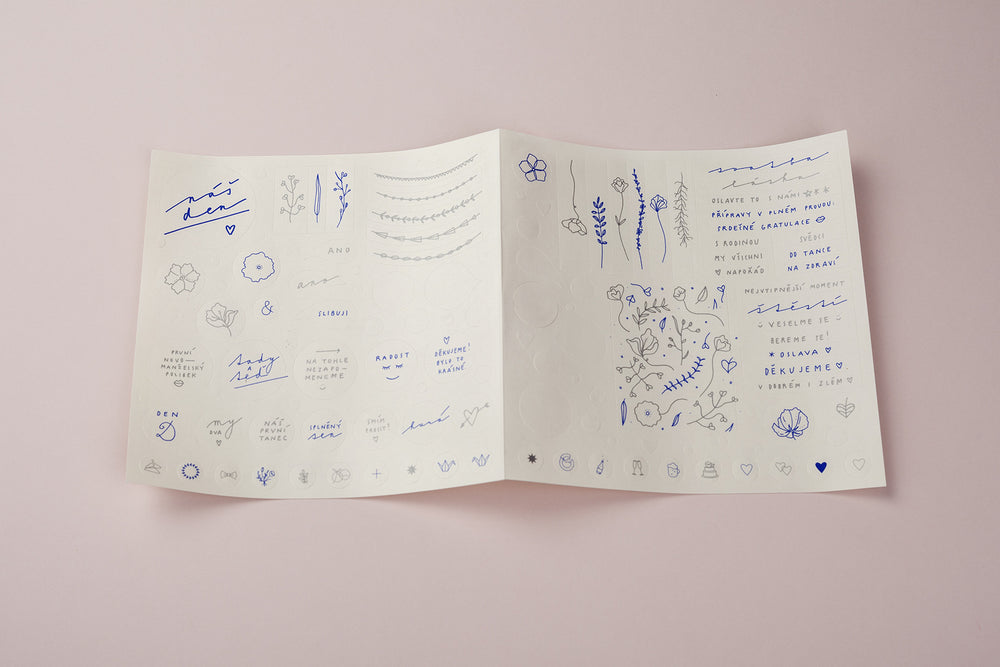 náš
den
ANO
ano
&
SLIBUJI
PRVNÍ
NOVO—
MANŽELSKÝ
POLIBEK
tady
a
teď
NA TOHLE
NEZAPO-
MENEME
RADOST
DĚKUJEME!
BYLO TO
KRÁSNÉ
DEN
D
my
DVA
NÁŠ
PRVNÍ
TANEC
SPLNĚNÝ
sen
SMÍM
PROSIT?
svatba
láska
OSLAVTE TO S NÁMI
PŘÍPRAVY V PLNÉM PROUDU!
SRDEČNÉ GRATULACE
S RODINOU
MY VŠICHNI
NAPOŘÁD
SVĚDCI
DO TANCE
NA ZDRAVÍ
NEJVTIPNĚJŠÍ MOMENT
štěstí
VESELME SE
BEREME SE!
OSLAVA
DĚKUJEME
V DOBRÉM I ZLÉM